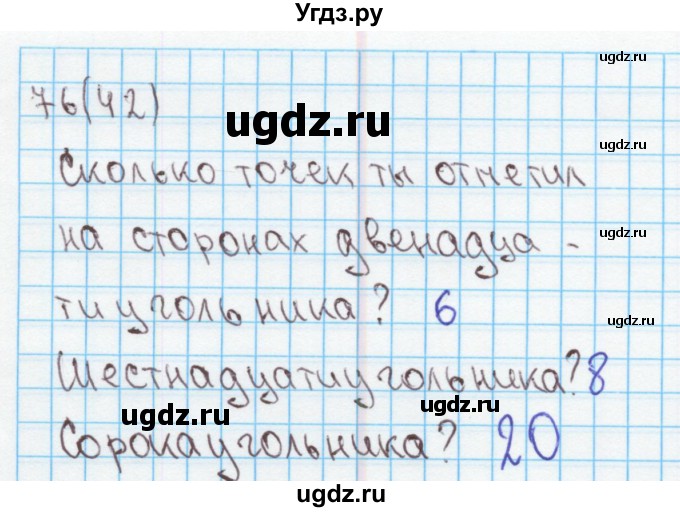 Угдз.ру
ugdz.ru
76(42)
ugdz.ru
ugdz.ru
Сколько точек ты отметил
ugdz.ru
на сторонах двенадца-
ugdz.ru
тиугольника? 6
ugdz.ru
Шестнадцатиугольника? 8
ugdz.ru
ugdz.ru
Сорокаугольника? 20
ugdz.ru
ugdz.ru